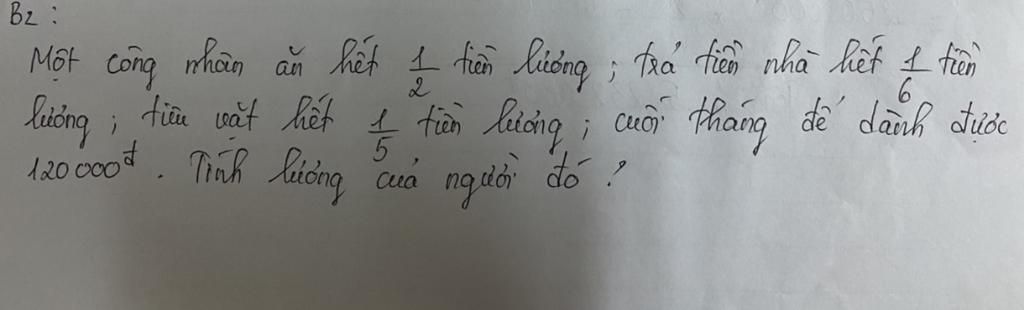 B2 :
Một công nhân ăn hết 1/2 tiền lương ; trả tiền nhà hết 1/6 tiền
lương ; tiêu vặt hết 1/5 tiền lương ; cuối tháng để dành được
120000đ. Tính lương của người đó ?